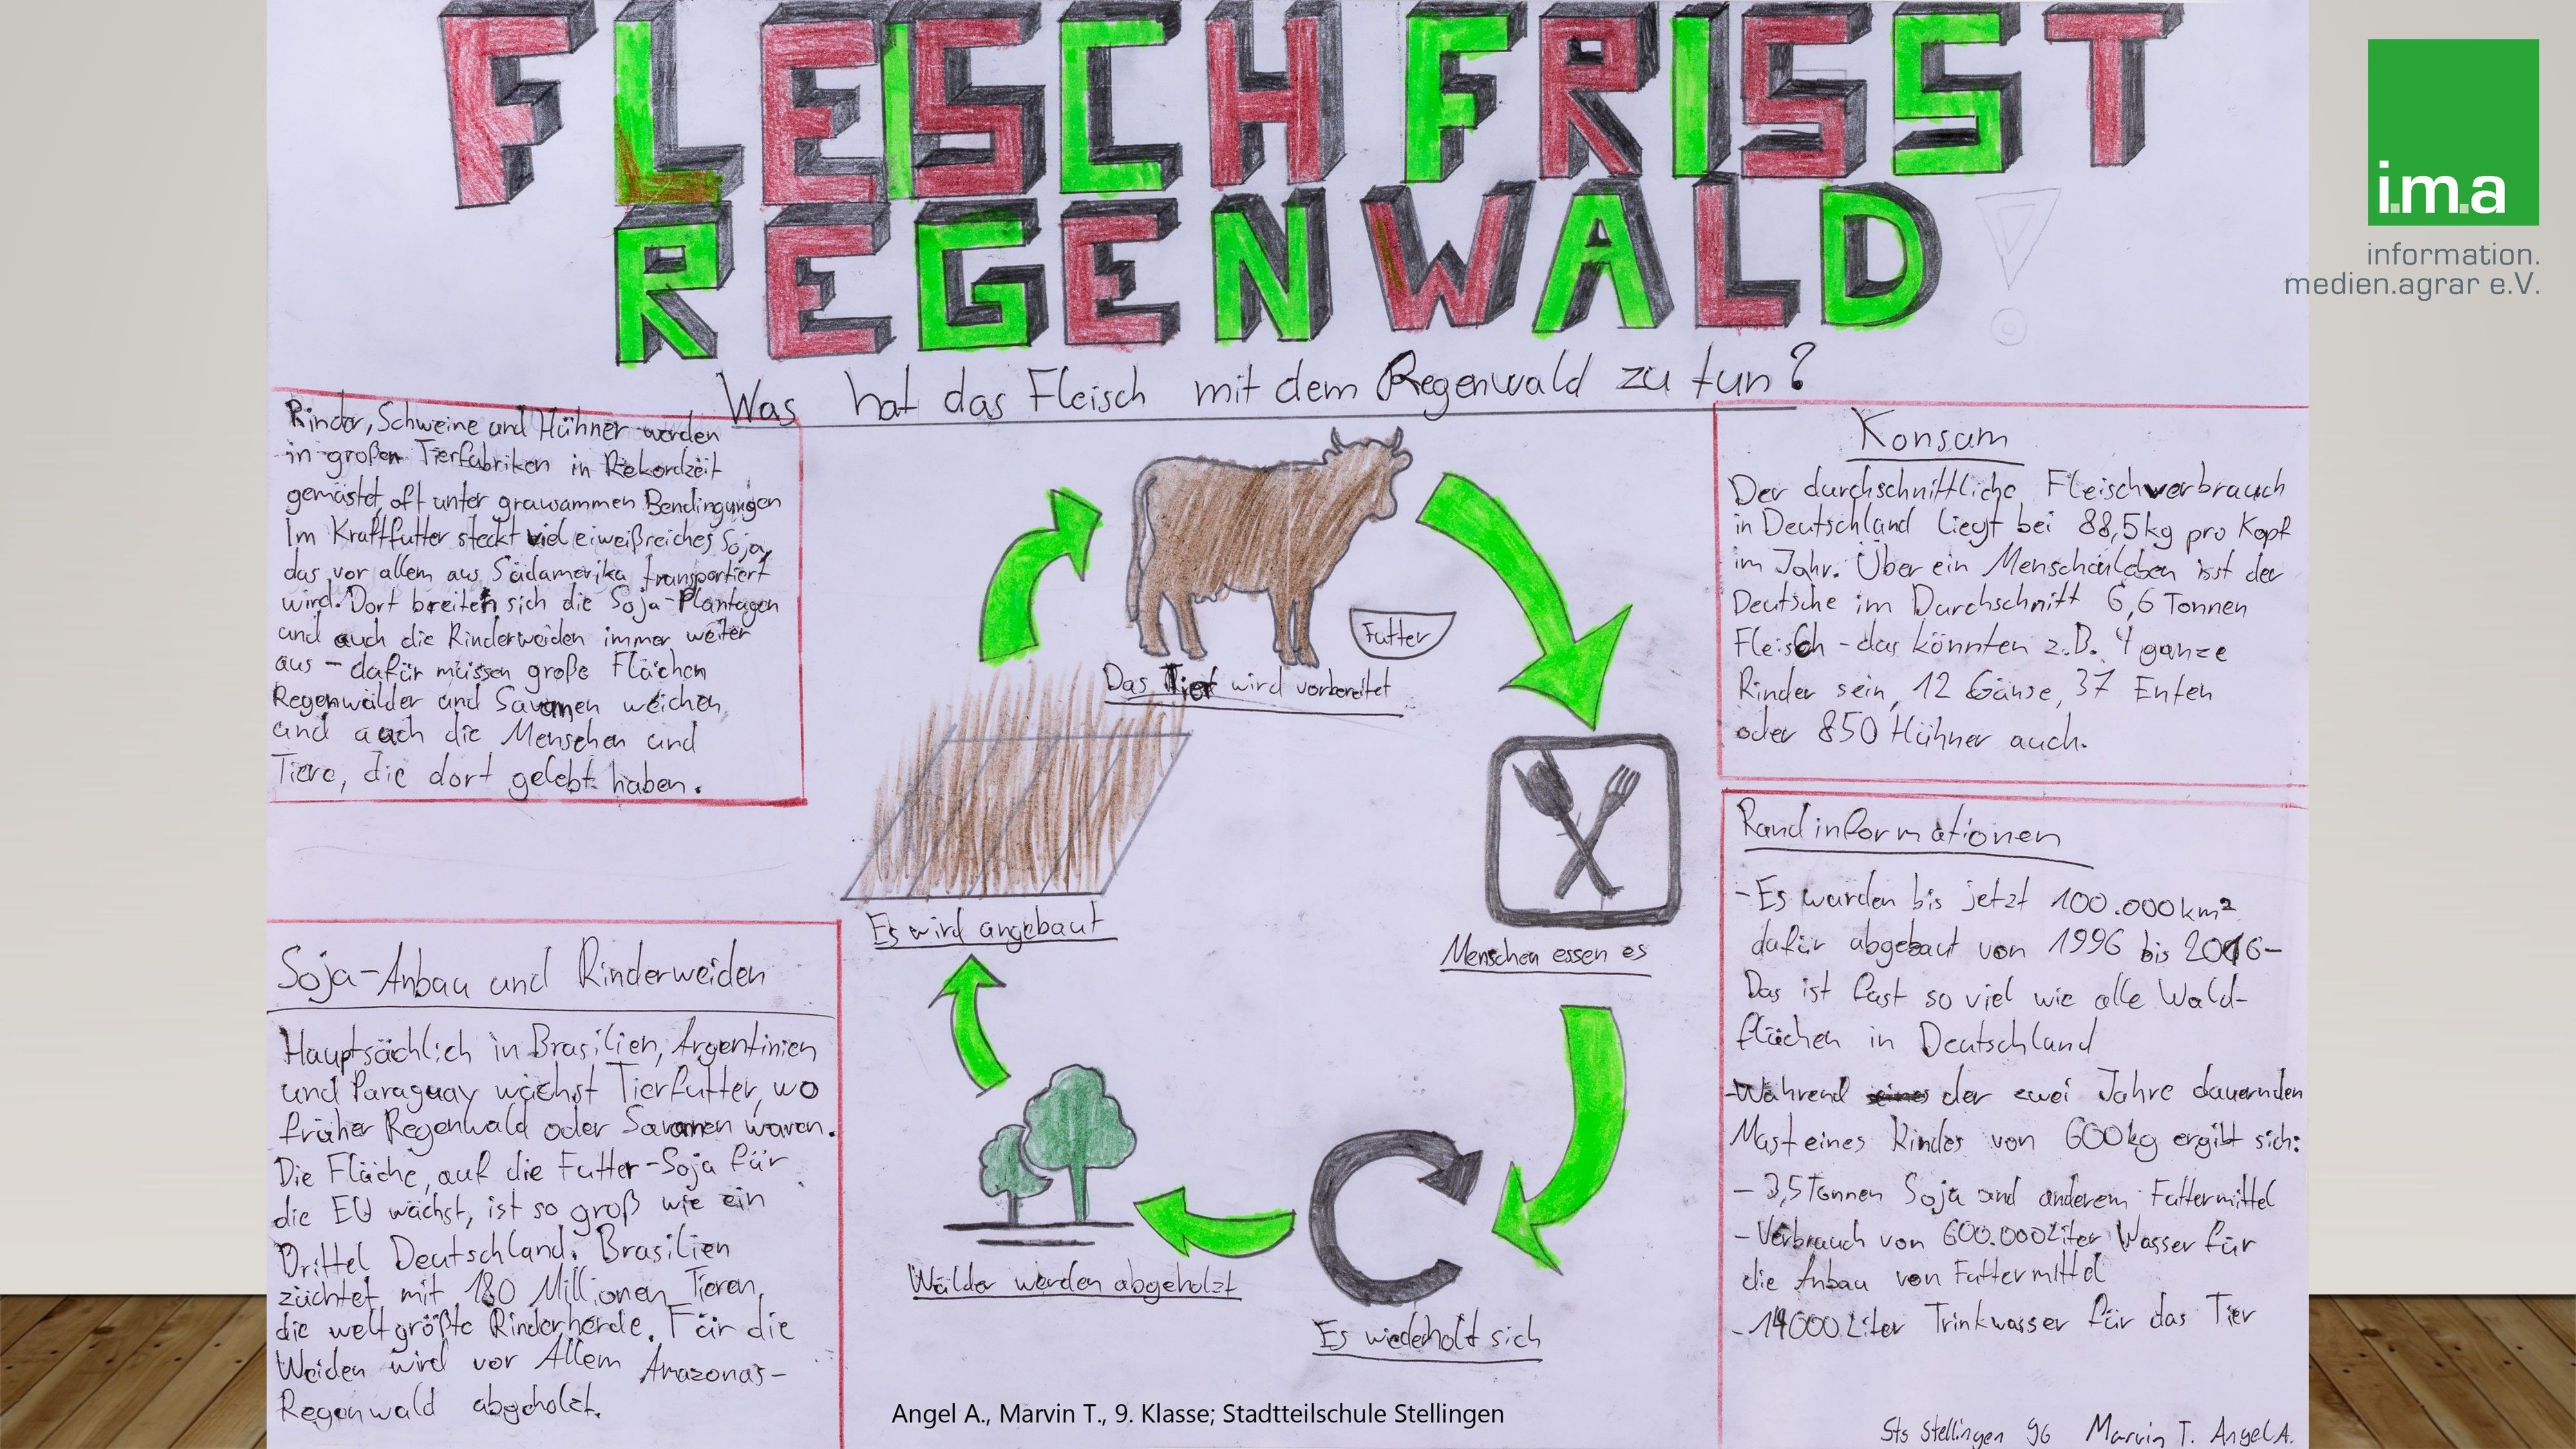 FLEISCH FRISST
REGENWALD
i.m.a
information.
medien.agrar e.V.
Was hat das Fleisch mit dem Regenwald zu tun?
Rinder, Schweine und Hühner werden
in großen Tierfabriken in Rekordzeit
gemästet, oft unter grausammen Bendingungen
Im Kraftfutter steckt viel eiweißreiches Soja,
das vor allem aus Südamerika transportiert
wird. Dort breiten sich die Soja-Plantagen
und auch die Rinderweiden immer weiter
aus - dafür müssen große Flächen
Regenwälder und Savannen weichen
und auch die Menschen und
Tiere, die dort gelebt haben.
Futter
Das Tier wird vorbereitet
Es wird angebaut
Menschen essen es
Wälder werden abgeholzt
Es wiederholt sich
Konsum
Der durchschnittliche Fleischverbrauch
in Deutschland liegt bei 88,5kg pro Kopf
im Jahr. Über ein Menschenleben isst der
Deutsche im Durchschnitt 6,6 Tonnen
Fleisch - das könnten z.B. 4 ganze
Rinder sein, 12 Gänse, 37 Enten
oder 850 Hühner auch.
Soja-Anbau und Rinderweiden
Hauptsächlich in Brasilien, Argentinien
und Paraguay wächst Tierfutter, wo
früher Regenwald oder Savannen waren.
Die Fläche, auf die Futter-Soja für
die EU wächst, ist so groß wie ein
Drittel Deutschland. Brasilien
züchtet mit 180 Millionen Tieren,
die weltgrößte Rinderherde. Für die
Weiden wird vor Allem Amazonas-
Regenwald abgeholzt.
Randinformationen
- Es wurden bis jetzt 100.000km²
dafür abgebaut von 1996 bis 2016-
Das ist fast so viel wie alle Wald-
flächen in Deutschland
- Während der zwei Jahre dauernden
Mast eines Rindes von 600kg ergibt sich:
- 3,5 Tonnen Soja und anderem Futtermittel
- Verbrauch von 600.000 Liter Wasser für
die Anbau von Futtermittel
- 14000 Liter Trinkwasser für das Tier
Angel A., Marvin T., 9. Klasse; Stadtteilschule Stellingen
Sts Stellingen 9G Marvin T. Angel A.